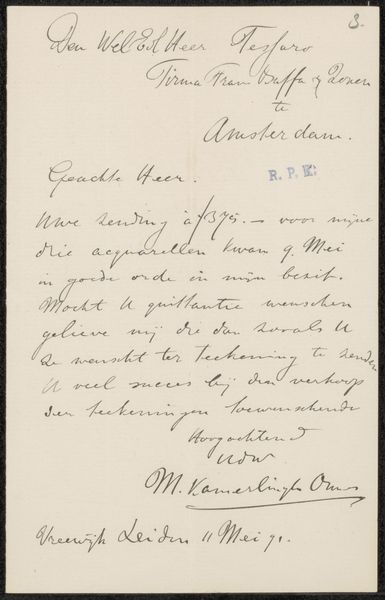 3.
Den WelEd Heer Tessaro
Firma Frans Buffa & Zonen
te
Amsterdam.
R. P. K.
Geachte Heer.
Uwe zending à ƒ375.— voor mijne
drie acquarellen kwam 9. Mei
in goede orde in mijn bezit.
Mocht U quittantie wenschen
gelieve mij die dan zooals U
ze wenscht ter teekening te zenden
U veel succes bij den verkoop
der teekeningen toewenschende
Hoogachtend
UdW
M. Kamerlingh Onnes
Vreewijk Leiden 11 Mei 91.